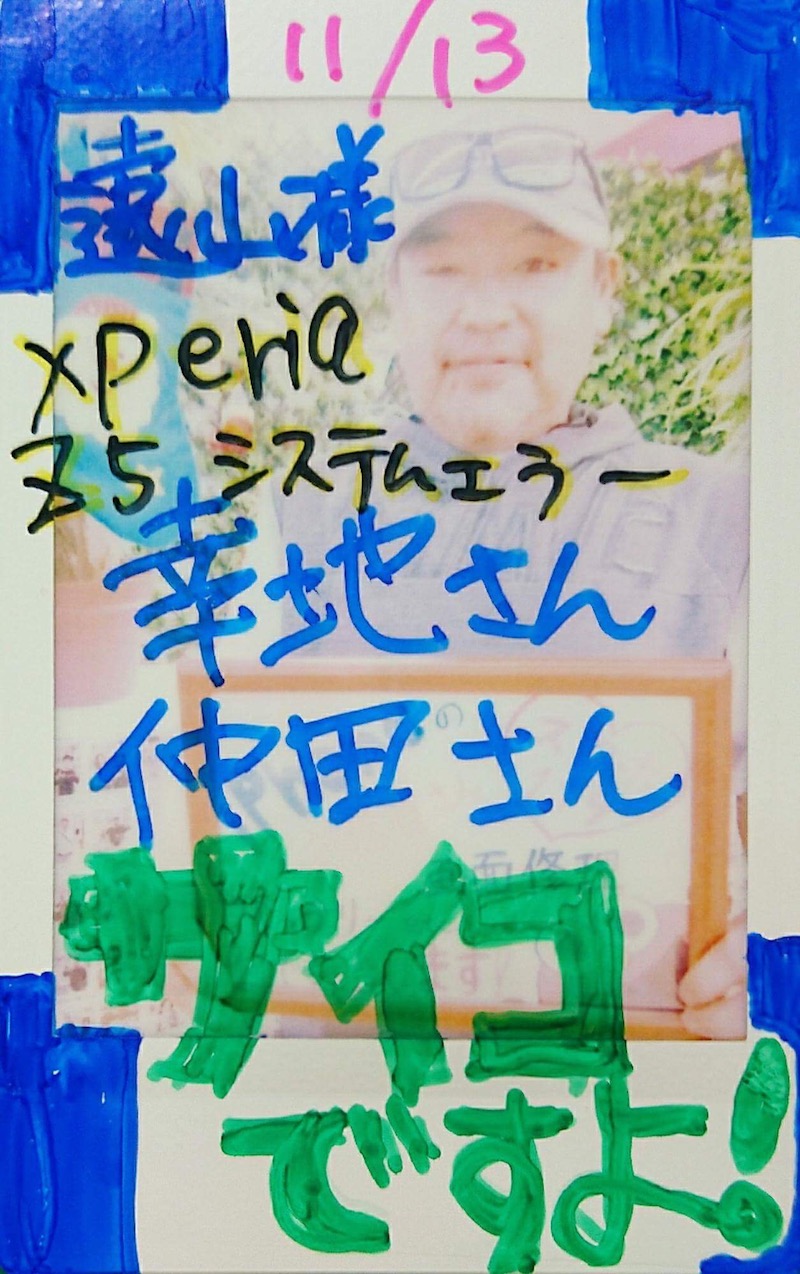 11/13
遠山様
xperia
Z5 システムエラー
幸地さん
仲田さん
の
面修理
ます!
サイコ
ですよ!